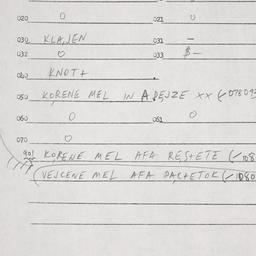 020 0 021 0
030 KLAJEN 031 —
032 0 033 $ —
KNOT+
050 KORENE MEL IN A DEJZE XX (-07809
060 0 061 0
070 0
901 KORENE MEL AFA RESTETE (-108
VEJCENE MEL AFA DACTETOK (-1080